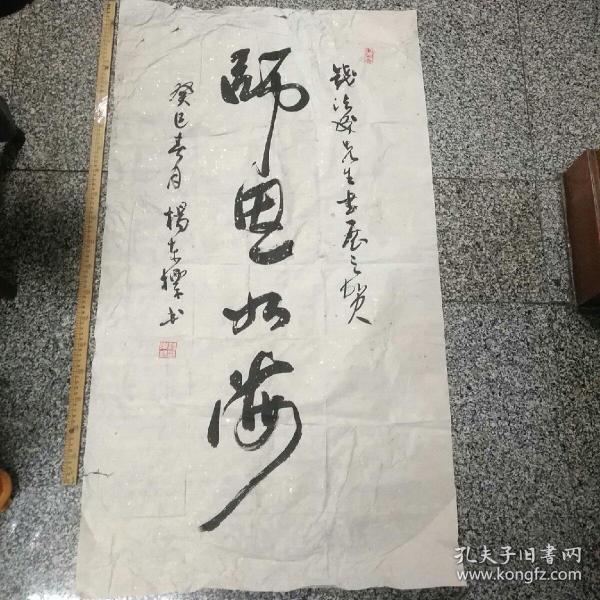 錢法成先生書展之賀
師恩如海
癸巳春月 楊東標書
孔夫子旧书网
www.kongfz.com